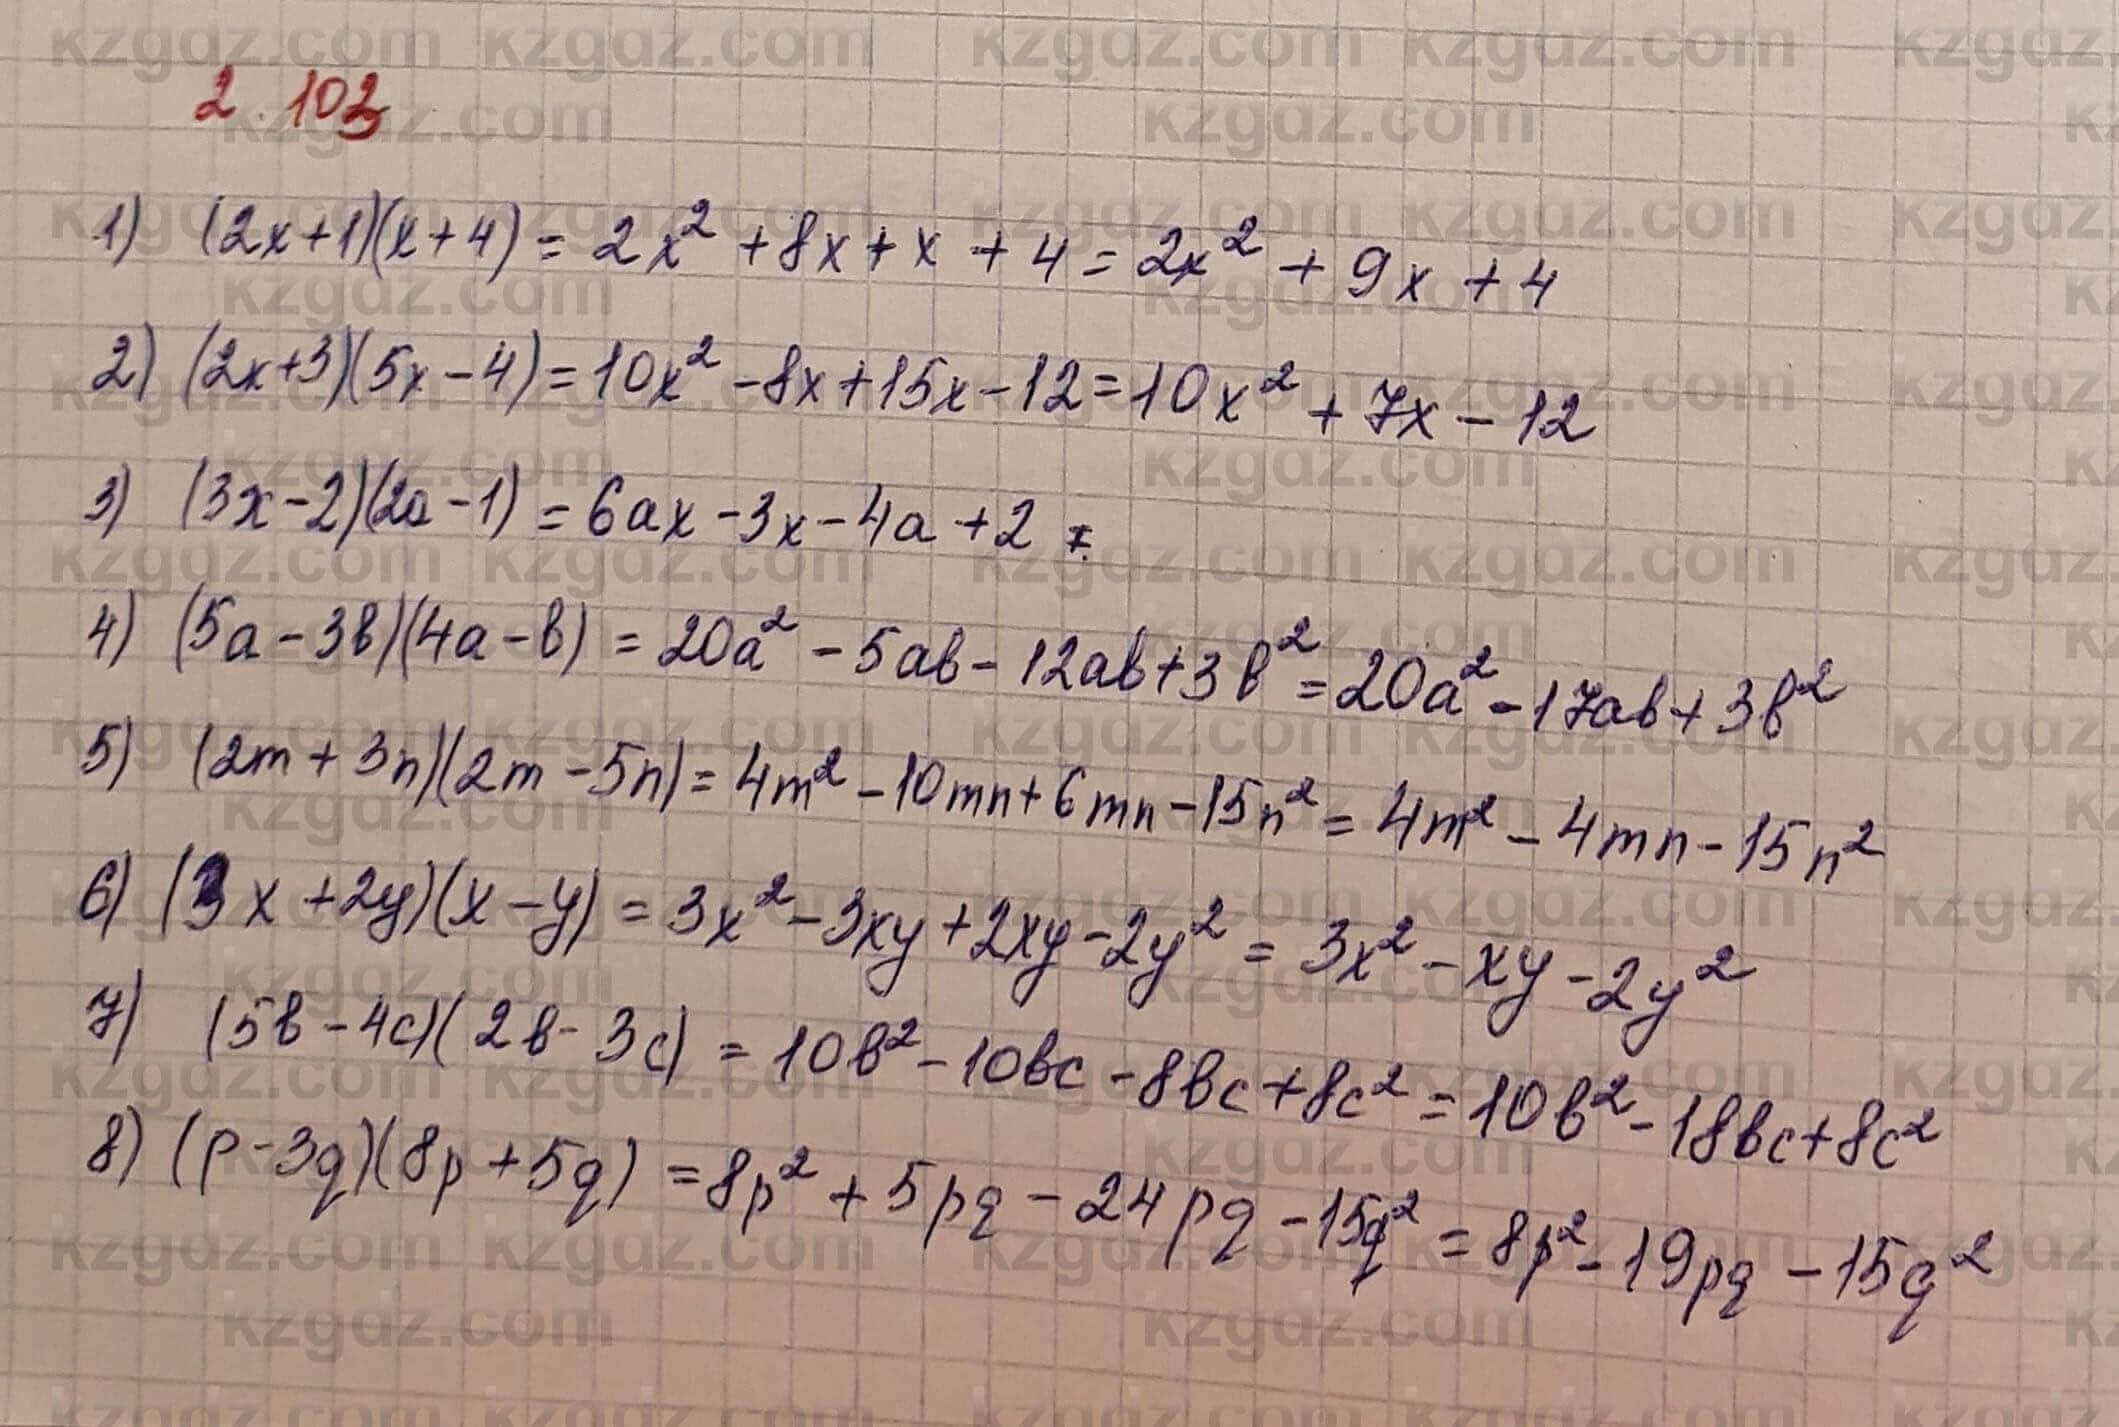 2.103
1) (2x+1)(x+4) = 2x² + 8x + x + 4 = 2x² + 9x + 4
2) (2x+3)(5x-4) = 10x² - 8x + 15x - 12 = 10x² + 7x - 12
3) (3x-2)(2a-1) = 6ax - 3x - 4a + 2
4) (5a-3b)(4a-b) = 20a² - 5ab - 12ab + 3b² = 20a² - 17ab + 3b²
5) (2m+3n)(2m-5n) = 4m² - 10mn + 6mn - 15n² = 4m² - 4mn - 15n²
6) (3x+2y)(x-y) = 3x² - 3xy + 2xy - 2y² = 3x² - xy - 2y²
7) (5b-4c)(2b-3c) = 10b² - 10bc - 8bc + 8c² = 10b² - 18bc + 8c²
8) (p-3q)(8p+5q) = 8p² + 5pq - 24pq - 15q² = 8p² - 19pq - 15q²